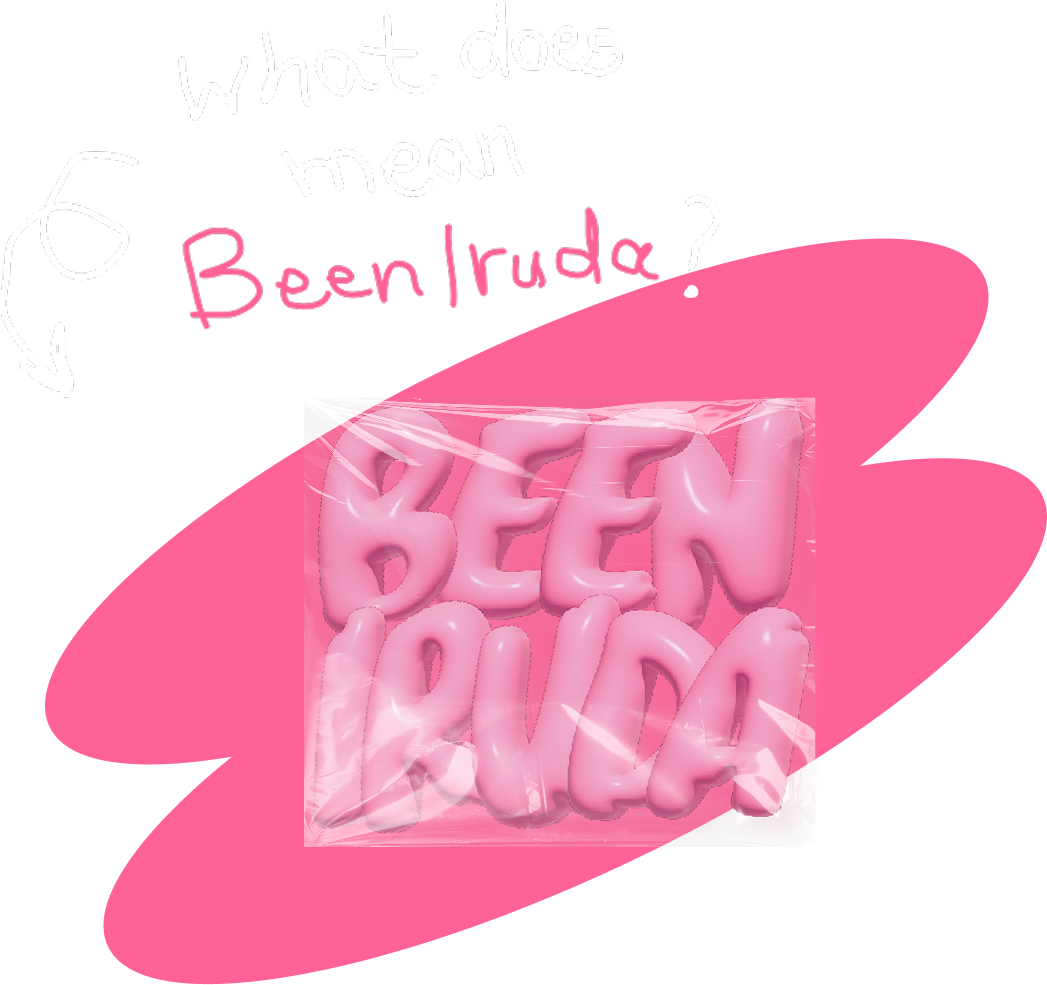 What does
mean
Been/ruda?
BEEN
IRUDA